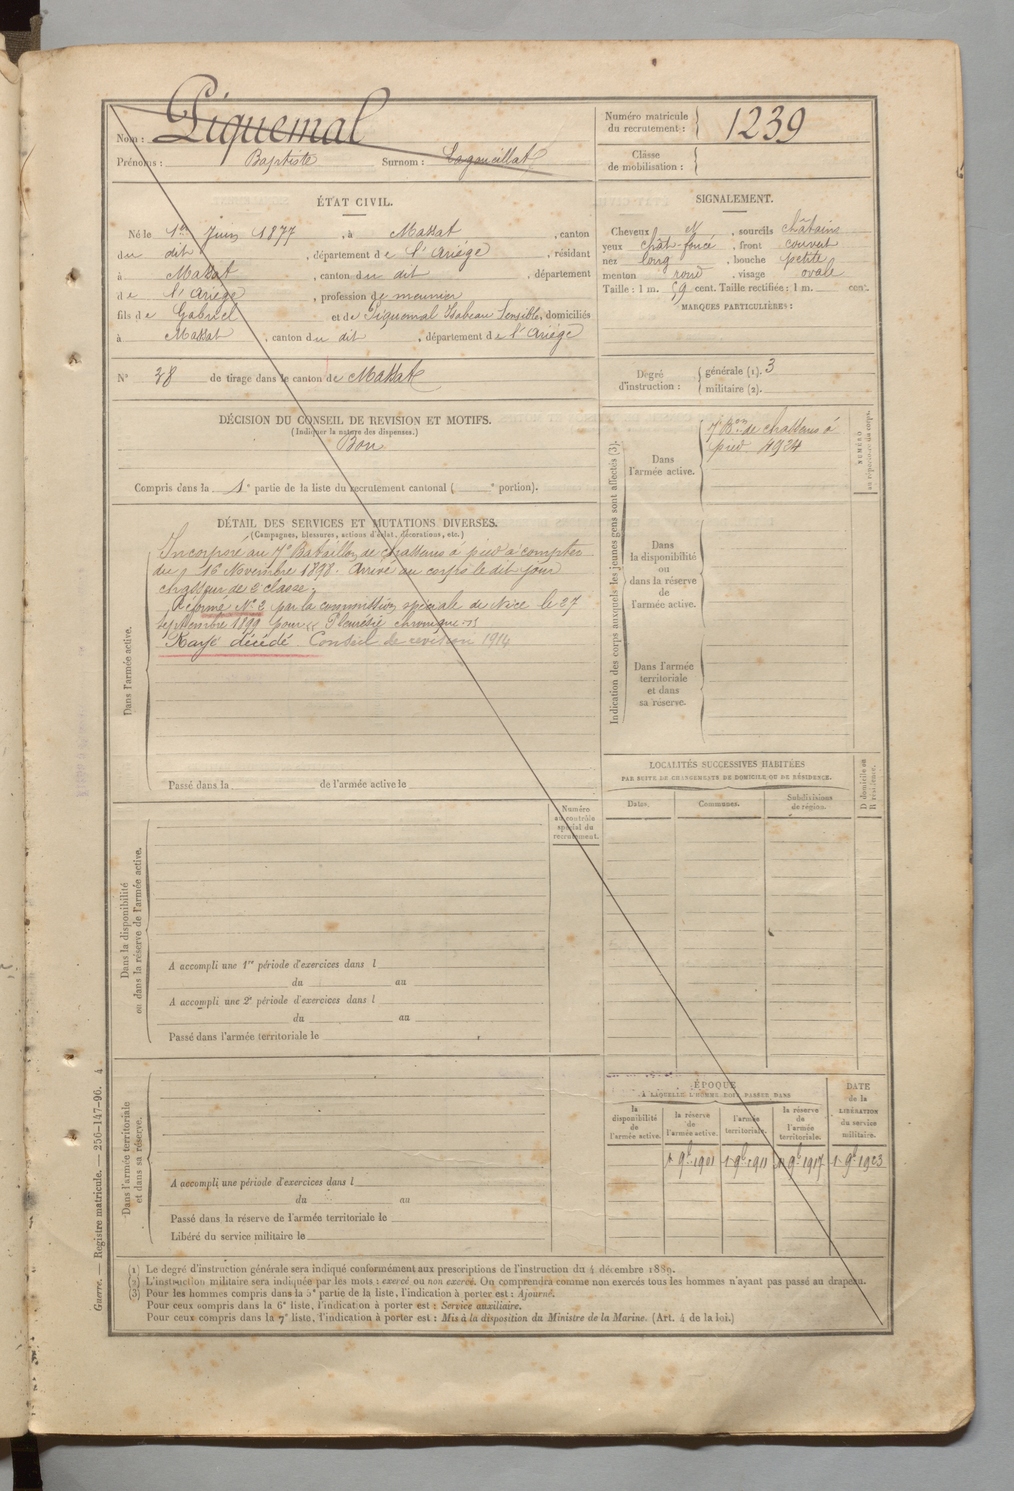 Nom : Piquemal
Prénoms : Baptiste Surnom : Lagoueillat
Numéro matricule
du recrutement : 1239
Classe
de mobilisation :
ÉTAT CIVIL.
Né le 1er Juin 1877, à Massat, canton
du dit, département de l'Ariège, résidant
à Massat, canton du dit, département
de l'Ariège, profession de meunier
fils de Gabriel et de Piquemal Isabeau Sensible, domiciliés
à Massat, canton du dit, département de l'Ariège
N° 38 de tirage dans le canton de Massat
SIGNALEMENT.
Cheveux N, sourcils châtains
yeux chât-foncé, front couvert
nez long, bouche petite
menton rond, visage ovale
Taille : 1 m. 59 cent. Taille rectifiée : 1 m. cent.
MARQUES PARTICULIÈRES :
Degré
d'instruction :
générale (1). 3
militaire (2).
DÉCISION DU CONSEIL DE REVISION ET MOTIFS.
(Indiquer la nature des dispenses.)
Bon
Compris dans la 1e partie de la liste du recrutement cantonal ( e portion).
DÉTAIL DES SERVICES ET MUTATIONS DIVERSES.
(Campagnes, blessures, actions d'éclat, décorations, etc.)
Dans l'armée active.
Incorporé au 7e Bataillon de chasseurs à pied à compter
du 16 Novembre 1898. Arrivé au corps le dit jour
chasseur de 2e classe.
Réformé N° 2 par la commission spéciale de Nice le 27
septembre 1899 pour "Pleurésie chronique".
Rayé décédé. Conseil de revision 1914
Passé dans la de l'armée active le
Indication des corps auxquels les jeunes gens sont affectés (3).
Dans
l'armée active.
7e Bon de chasseurs à
pied 4924
NUMÉRO
au répertoire du corps.
Dans
la disponibilité
ou
dans la réserve
de
l'armée active.
Dans l'armée
territoriale
et dans
sa réserve.
LOCALITÉS SUCCESSIVES HABITÉES
PAR SUITE DE CHANGEMENTS DE DOMICILE OU DE RÉSIDENCE.
Dates.
Communes.
Subdivisions
de région.
D domicile ou
R résidence.
Numéro
au contrôle
spécial du
recrutement.
Dans la disponibilité
ou dans la réserve de l'armée active.
A accompli une 1re période d'exercices dans l
du au
A accompli une 2e période d'exercices dans l
du au
Passé dans l'armée territoriale le
Dans l'armée territoriale
et dans sa réserve.
A accompli une période d'exercices dans l
du au
Passé dans la réserve de l'armée territoriale le
Libéré du service militaire le
ÉPOQUE
A LAQUELLE L'HOMME DOIT PASSER DANS
la
disponibilité
de
l'armée active.
la réserve
de
l'armée active.
l'armée
territoriale.
la réserve
de
l'armée
territoriale.
DATE
de la
LIBÉRATION
du service
militaire.
1 9b 1901 1 9b 1911 1 9b 1917 1 9b 1923
(1) Le degré d'instruction générale sera indiqué conformément aux prescriptions de l'instruction du 4 décembre 1889.
(2) L'instruction militaire sera indiquée par les mots : exercé ou non exercé. On comprendra comme non exercés tous les hommes n'ayant pas passé au drapeau.
(3) Pour les hommes compris dans la 5e partie de la liste, l'indication à porter est : Ajourné.
Pour ceux compris dans la 6e liste, l'indication à porter est : Service auxiliaire.
Pour ceux compris dans la 7e liste, l'indication à porter est : Mis à la disposition du Ministre de la Marine. (Art. 4 de la loi.)
Guerre. — Registre matricule. — 256-147-96. 4